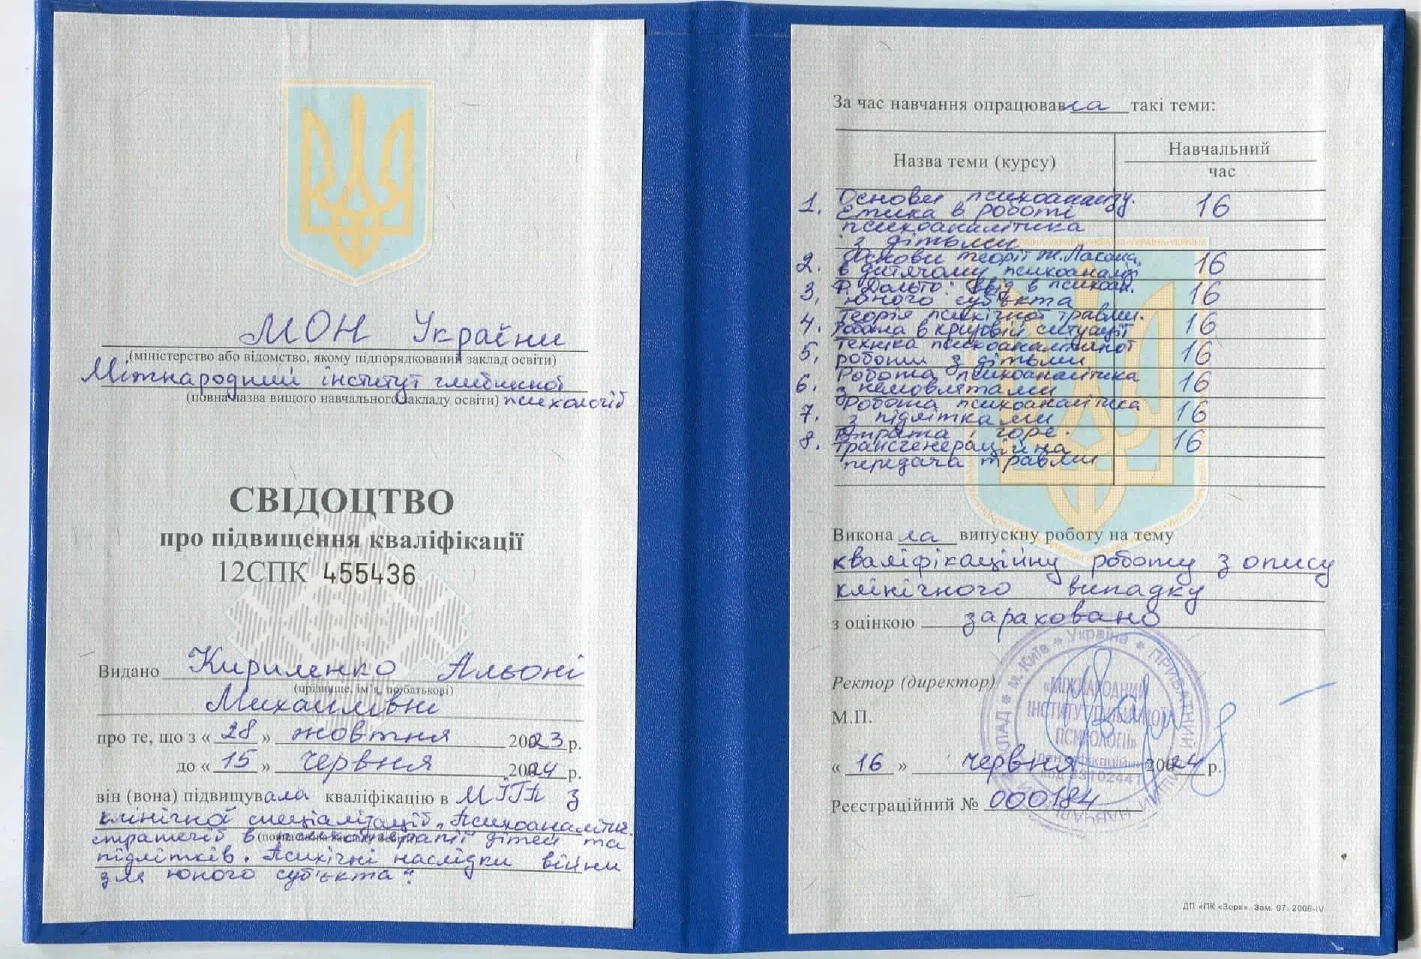 МОН України
(міністерство або відомство, якому підпорядкований заклад освіти)
Міжнародний інститут глибинної
(повна назва вищого навчального закладу освіти) психології
СВІДОЦТВО
про підвищення кваліфікації
12СПК 455436
Видано Кириленко Альоні
(прізвище, ім'я, по батькові)
Михайлівні
про те, що з « 28 » жовтня 2023 р.
до « 15 » червня 2024 р.
він (вона) підвищувала кваліфікацію в МІГП з
клінічної спеціалізації „Психоаналітич.
стратегії в психотерапії дітей та
підлітків. Психічні наслідки війни
для юного суб'єкта“.
За час навчання опрацювала такі теми:
Назва теми (курсу) Навчальний
час
1. Основи психоаналізу. 16
Етика в роботі
психоаналітика
з дітьми
2. Основи теорії Ж. Лакана 16
в дитячому психоаналізі
3. Ф. Дольто: Ввід в психоан. 16
юного суб'єкта
4. Теорія психічної травми. 16
Робота в кризовій ситуації
5. Техніка психоаналітичної 16
роботи з дітьми
6. Робота психоаналітика 16
з немовлятами
7. Робота психоаналітика 16
з підлітками
8. Втрата і горе. 16
Трансгенераційна
передача травми
Виконала випускну роботу на тему
кваліфікаційну роботу з опису
клінічного випадку
з оцінкою зараховано
Ректор (директор)
М.П.
« 16 » червня 2024 р.
Реєстраційний № 000184
м. Київ * Україна * ПРИВАТНИЙ
НАВЧАЛЬНИЙ ЗАКЛАД
«МІЖНАРОДНИЙ
ІНСТИТУТ ГЛИБИННОЇ
ПСИХОЛОГІЇ»
ДП «ПК «Зоря». Зам. 97. 2006-IV